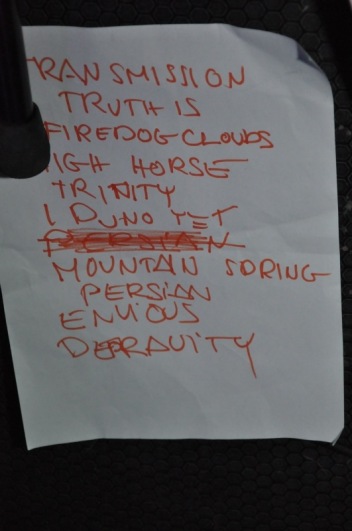 TRANSMISSION
TRUTH IS
FIREDOG CLOUDS
HIGH HORSE
TRINITY
I DUNO YET
PERSIAN
MOUNTAIN SPRING
PERSIAN
ENVIOUS
DEPRAVITY